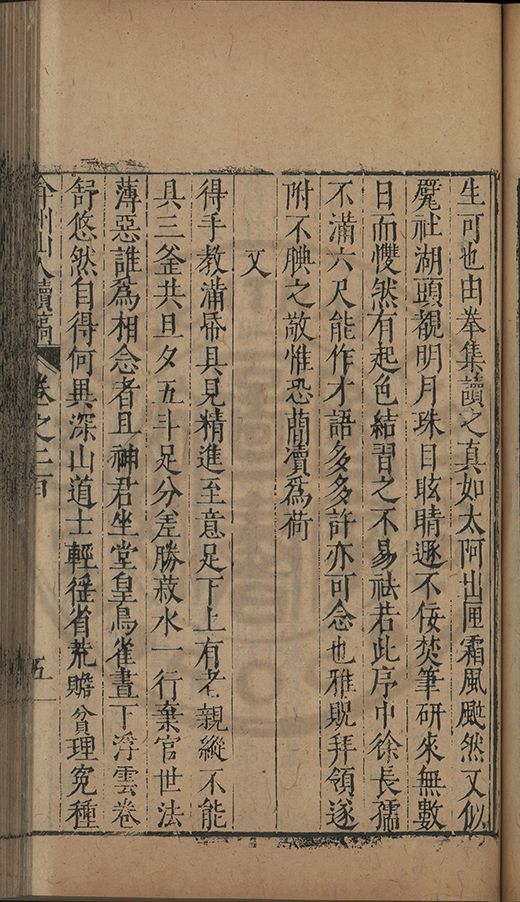 生可也由拳集讀之真如太阿出匣霜風颼然又似
甓社湖頭覩明月珠目眩睛遯不佞焚筆研來無數
日而戄然有起色結習之不易祛若此序中徐長孺
不滿六尺能作才語多多許亦可念也雅貺拜領遂
附不腆之敬惟恐蕳瀆爲荷
又
得手教滿帋具見精進至意足下上有老親縱不能
具三釜共旦夕五斗足分差勝菽水一行棄官世法
薄惡誰爲相念者且神君坐堂皇鳥雀晝下浮雲卷
舒悠然自得何異深山道士輕徭省荒贍貧理冤種
弇州山人續稿 卷之二百 五